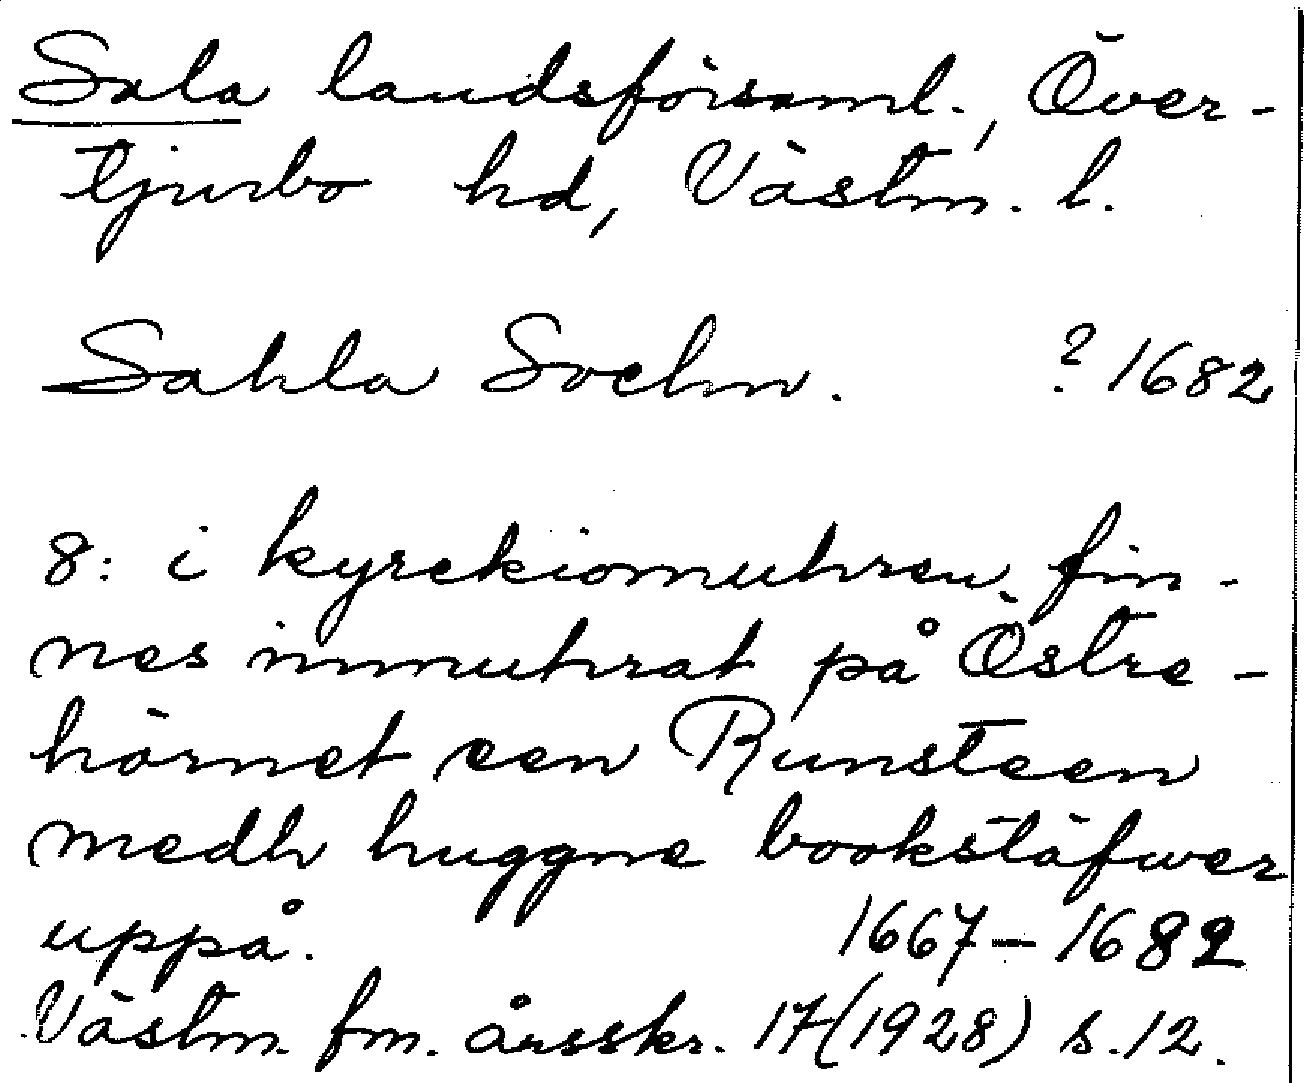 Sala landsförsaml., Över-
tjurbo hd, Västm. l.
Sahla Sochn. ? 1682
8: i kyrckiomuhren fin-
nes inmuhrat på Östre-
hörnet een Runsteen
medh huggne bookstäfwer
uppå. 1667-1682
Västm. fm. årsskr. 17(1928) s.12.